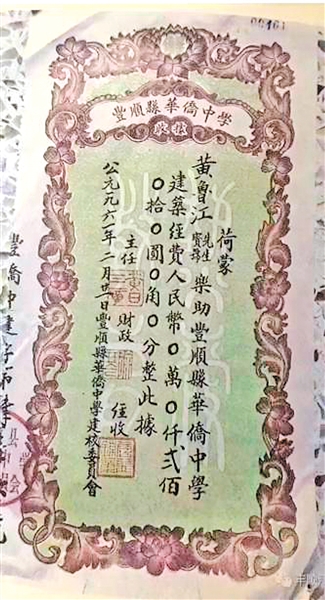 豐順縣華僑中學
荷蒙
黃魯江 先生 寶號 樂助豐順縣華僑中學
建築經費人民幣〇萬〇仟貳佰
〇拾〇圓〇角〇分整此據
主任 財政 經收
公元一九九六年二月廿一日豐順縣華僑中學建校委員會
豐僑中建